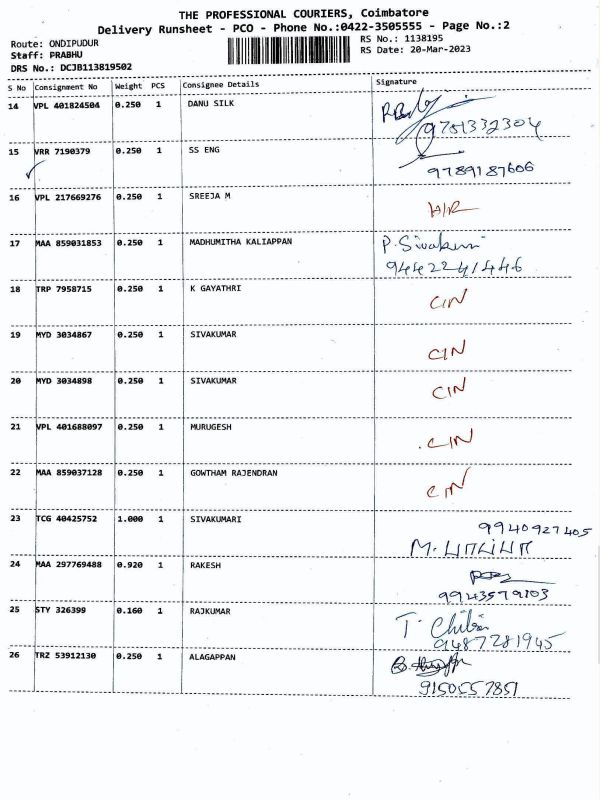 THE PROFESSIONAL COURIERS, Coimbatore
Delivery Runsheet - PCO - Phone No.:0422-3505555 - Page No.:2
Route: ONDIPUDUR
RS No.: 1138195
Staff: PRABHU
RS Date: 20-Mar-2023
DRS No.: DCJB113819502
S No Consignment No Weight PCS Consignee Details Signature
14 VPL 401824504 0.250 1 DANU SILK
9751332304
15 VRR 7190379 0.250 1 SS ENG
9789187606
16 VPL 217669276 0.250 1 SREEJA M H/R
17 MAA 859031853 0.250 1 MADHUMITHA KALIAPPAN P. Sivakumi
9442241446
18 TRP 7958715 0.250 1 K GAYATHRI CIN
19 MYD 3034867 0.250 1 SIVAKUMAR CIN
20 MYD 3034898 0.250 1 SIVAKUMAR CIN
21 VPL 401688097 0.250 1 MURUGESH CIN
22 MAA 859037128 0.250 1 GOWTHAM RAJENDRAN CIN
23 TCG 40425752 1.000 1 SIVAKUMARI 9940927405
M.
24 MAA 297769488 0.920 1 RAKESH
9943579103
25 STY 326399 0.160 1 RAJKUMAR T. Chibi
9487281945
26 TRZ 53912130 0.250 1 ALAGAPPAN
9150557851